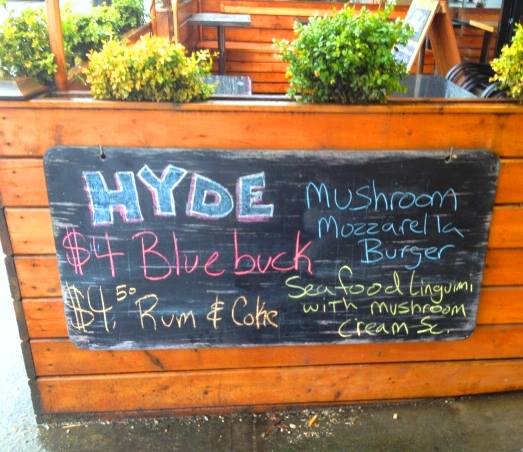 HYDE
$4 Bluebuck
$4.50 Rum & Coke
Mushroom
Mozzarella
Burger
Seafood Linguini
with mushroom
cream Sc.